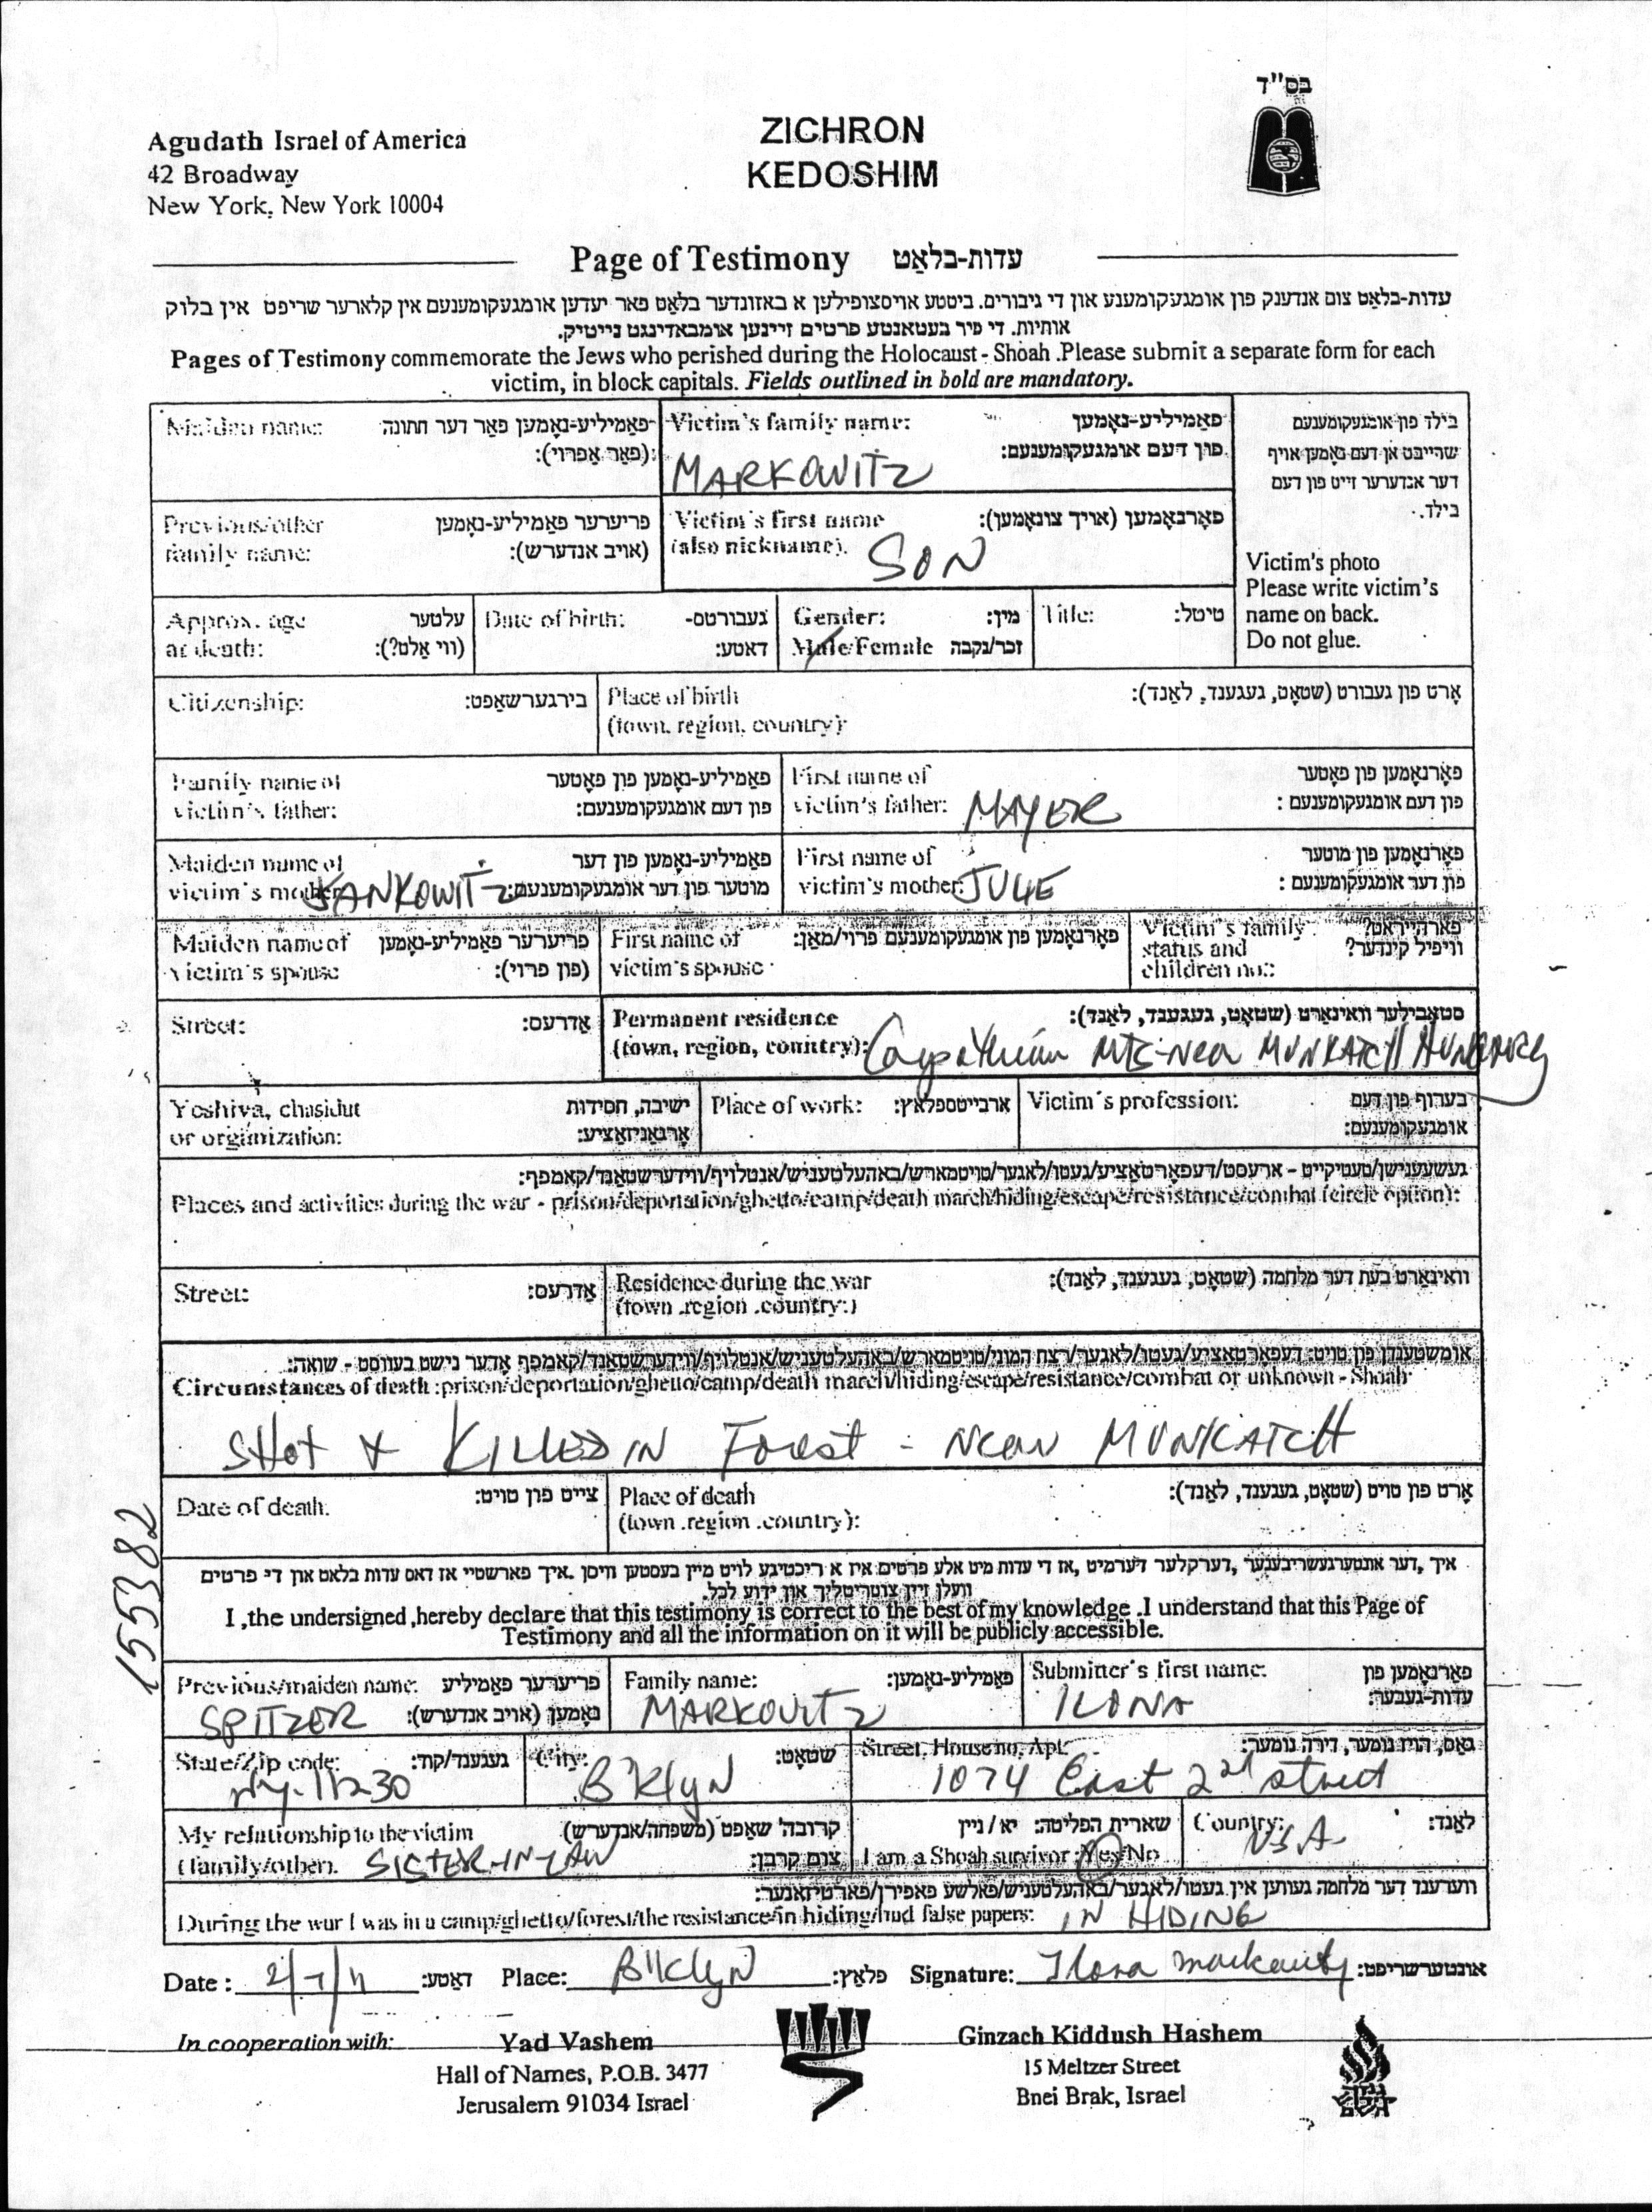 בס"ד
Agudath Israel of America
42 Broadway
New York, New York 10004
ZICHRON
KEDOSHIM
Page of Testimony עדות-בלאַט
עדות-בלאַט צום אנדענק פון אומגעקומענע און די גיבורים. ביטטע אויסצופילען א באזונדער בלאַט פאר יעדען אומגעקומענעם אין קלארער שריפט אין בלוק
אותיות. די פיר בעטאנטע פרטים זיינען אומבאדינגט נייטיק.
Pages of Testimony commemorate the Jews who perished during the Holocaust - Shoah .Please submit a separate form for each
victim, in block capitals. Fields outlined in bold are mandatory.
Maiden name: פאַמיליע-נאָמען פאַר דער חתונה
(פאַר אַפרוי):
Victim's family name: פאַמיליע-נאָמען
פון דעם אומגעקומענעם:
MARKOWITZ
בילד פון אומגעקומענעם
שרייבט אן דעם נאָמען אויף
דער אנדערער זייט פון דעם
בילד.
Previous/other פריערער פאַמיליע-נאָמען
family name: (אויב אנדערש):
Victim's first name פאָרנאָמען (אויך צונאָמען):
(also nickname). SON
Victim's photo
Please write victim's
name on back.
Do not glue.
Approx. age עלטער
at death: (ווי אַלט?):
Date of birth: געבורטס-
דאַטע:
Gender: מין:
Male/Female זכר/נקבה
Title: טיטל:
Citizenship: בירגערשאַפט:
Place of birth אָרט פון געבורט (שטאָט, געגענד, לאַנד):
(town, region, country):
Family name of פאַמיליע-נאָמען פון פאָטער
victim's father: פון דעם אומגעקומענעם:
First name of פאָרנאָמען פון פאָטער
victim's father: MAYER פון דעם אומגעקומענעם :
Maiden name of פאַמיליע-נאָמען פון דער
victim's mother: JANKOWITZ מוטער פון דער אומגעקומענעם:
First name of פאָרנאָמען פון מוטער
victim's mother: JULIE פון דער אומגעקומענעם :
Maiden name of פריערער פאַמיליע-נאָמען
victim's spouse (פון פרוי):
First name of פאָרנאָמען פון אומגעקומענעם פרוי/מאַן:
victim's spouse
Victim's family פארהייראט?
status and וויפיל קינדער?
children no.:
Street: אַדרעס:
Permanent residence סטאַבילער וואוינאָרט (שטאָט, געגענד, לאַנד):
(town, region, country): Carpathian Mts-near MUNKATCH HUNGARY
Yeshiva, chasidut ישיבה, חסידות
or organization: אָרגאַניזאַציע:
Place of work: ארבייטספלאץ:
Victim's profession: בערוף פון דעם
אומגעקומענעם:
געשעענישן/טעטיקייט - ארעסט/דעפאָרטאַציע/געטו/לאגער/טויטמארש/באהעלטעניש/אנטלויף/ווידערשטאַנד/קאמפף:
Places and activities during the war - prison/deportation/ghetto/camp/death march/hiding/escape/resistance/combat (circle option):
Street: אַדרעס:
Residence during the war וואוינאָרט בעת דער מלחמה (שטאָט, געגענד, לאַנד):
(town .region .country:)
אומשטענדן פון טויט: דעפאָרטאַציע/געטו/לאגער/רצח המוני/טויטמארש/באהעלטעניש/אנטלויף/ווידערשטאַנד/קאמפף אָדער נישט בעוווסט - שואה:
Circumstances of death :prison/deportation/ghetto/camp/death march/hiding/escape/resistance/combat or unknown - Shoah
SHOT & KILLED IN Forest - near MUNKATCH
Date of death. צייט פון טויט:
Place of death אָרט פון טויט (שטאָט, געגענד, לאַנד):
(town .region .country):
איך ,דער אונטערגעשריבענער ,דערקלער דערמיט ,אז די עדות מיט אלע פרטים איז א ריכטיגע לויט מיין בעסטען וויסן .איך פארשטיי אז דאס עדות בלאט און די פרטים
וועלן זיין צוטריטליך און ידוע לכל.
I ,the undersigned ,hereby declare that this testimony is correct to the best of my knowledge .I understand that this Page of
Testimony and all the information on it will be publicly accessible.
Previous/maiden name: פריערער פאַמיליע
SPITZER נאָמען (אויב אנדערש):
Family name: פאַמיליע-נאָמען:
MARKOVITZ
Submitter's first name: פאָרנאָמען פון
עדות-געבער:
ILONA
State/Zip code: געגענד/קוד:
NY. 11230
City: שטאָט:
B'KlyN
Street, House no, Apt: גאַס, הויז נומער, דירה נומער:
1074 East 2nd street
My relationship to the victim קרובה' שאַפט (משפחה/אנדערש)
(family/other). SISTER-IN-LAW צום קרבן:
שארית הפליטה: יא / ניין
I am a Shoah survivor :Yes/No
Country: לאַנד:
USA
ווערענד דער מלחמה געווען אין געטו/לאגער/באהעלטעניש/פאלשע פאפירן/פארטיזאנער:
During the war I was in a camp/ghetto/forest/the resistance/in hiding/had false papers: IN HIDING
Date : 2/7/11 דאַטע: Place: B'KlyN פּלאַץ: Signature: Ilona Markovitz אונטערשריפט:
In cooperation with:
Yad Vashem
Hall of Names, P.O.B. 3477
Jerusalem 91034 Israel
Ginzach Kiddush Hashem
15 Meltzer Street
Bnei Brak, Israel
155382